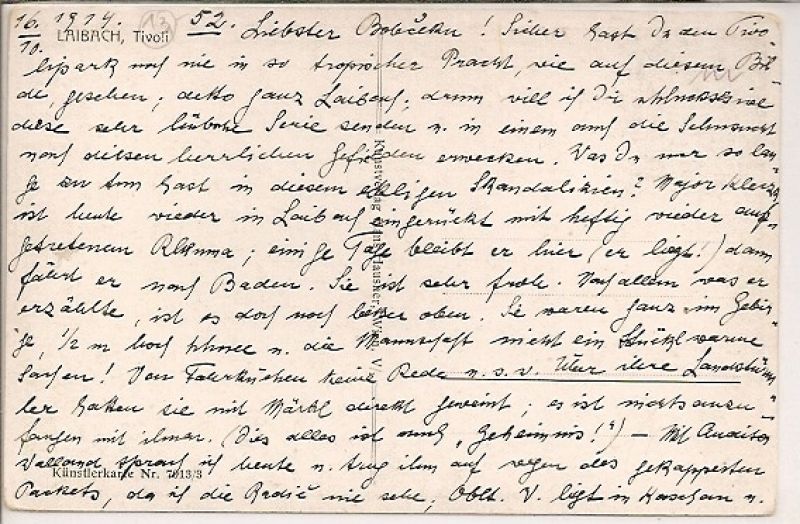 16./10. 1914. 13 52. Liebster Bobčeku! Sicher hast Du den Tivo-
LAIBACH, Tivoli
lipark noch nie in so tropischer Pracht, wie auf diesem Bil-
de, gesehen; detto ganz Laibach; drum will ich Dir
diese sehr hübsche Serie senden u. in einem auch die Sehnsucht
nach diesen herrlichen Gefilden erwecken. Was Du nur so lan-
ge zu tun hast in diesem Skandalikien? Major
ist heute wieder in Laibach eingerückt mit heftig wieder auf-
getretenem Rheuma; einige Tage bleibt er hier (er liegt!) dann
fährt er nach Baden. Sie ist sehr froh. Nach allem was er
erzählte, ist es doch noch besser oben. Sie waren ganz im Gebir-
ge, 1/2 m hoch Schnee u. die Mannschaft nicht ein Stückl warme
Sachen! Von Fahrküchen keine Rede u.s.w. Über ihre Landstürm-
ler haben sie mit Märkl direkt geweint; es ist nichts anzu-
fangen mit ihnen. (Dies alles ist auch „Geheimnis!") — Mit Auditor
sprach ich heute u. trug ihm auf wegen des
Künstlerkarte Nr. 7013/3
Packets, da ich die Radič nie sehe; Oblt. V. liegt in Kaschau u.